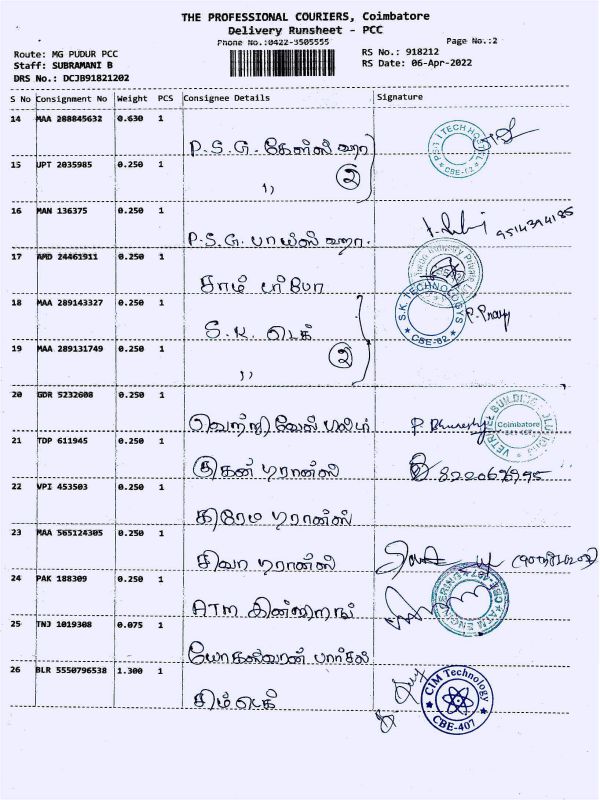 THE PROFESSIONAL COURIERS, Coimbatore
Delivery Runsheet - PCC
Phone No.:0422-3505555
Page No.:2
Route: MG PUDUR PCC
RS No.: 918212
Staff: SUBRAMANI B
RS Date: 06-Apr-2022
DRS No.: DCJB91821202
S No Consignment No Weight PCS Consignee Details Signature
14 MAA 288845632 0.630 1
P.S.G.
P.S.G I TECH HOSTEL
CBE-62
15 UPT 2035985 0.250 1
,, 2
16 MAN 136375 0.250 1
P.S.G. பாய்ஸ்
17 AMD 24461911 0.250 1
சாம் டர்போ
18 MAA 289143327 0.250 1
S.K. டெக்
S.K. TECHNOLOGYS
CBE-62
19 MAA 289131749 0.250 1
,, 2
20 GDR 5232608 0.250 1
வெற்றிவேல்
Coimbatore
21 TDP 611945 0.250 1
டிரான்ஸ்
22 VPI 453503 0.250 1
டிரான்ஸ்
23 MAA 565124305 0.250 1
சிவா டிரான்ஸ்
24 PAK 188309 0.250 1
ATM
ATM ENGINEERING
25 TNJ 1019308 0.075 1
பார்சல்
26 BLR 5550796538 1.300 1
சிம் டெக்
CIM Technology
CBE-407